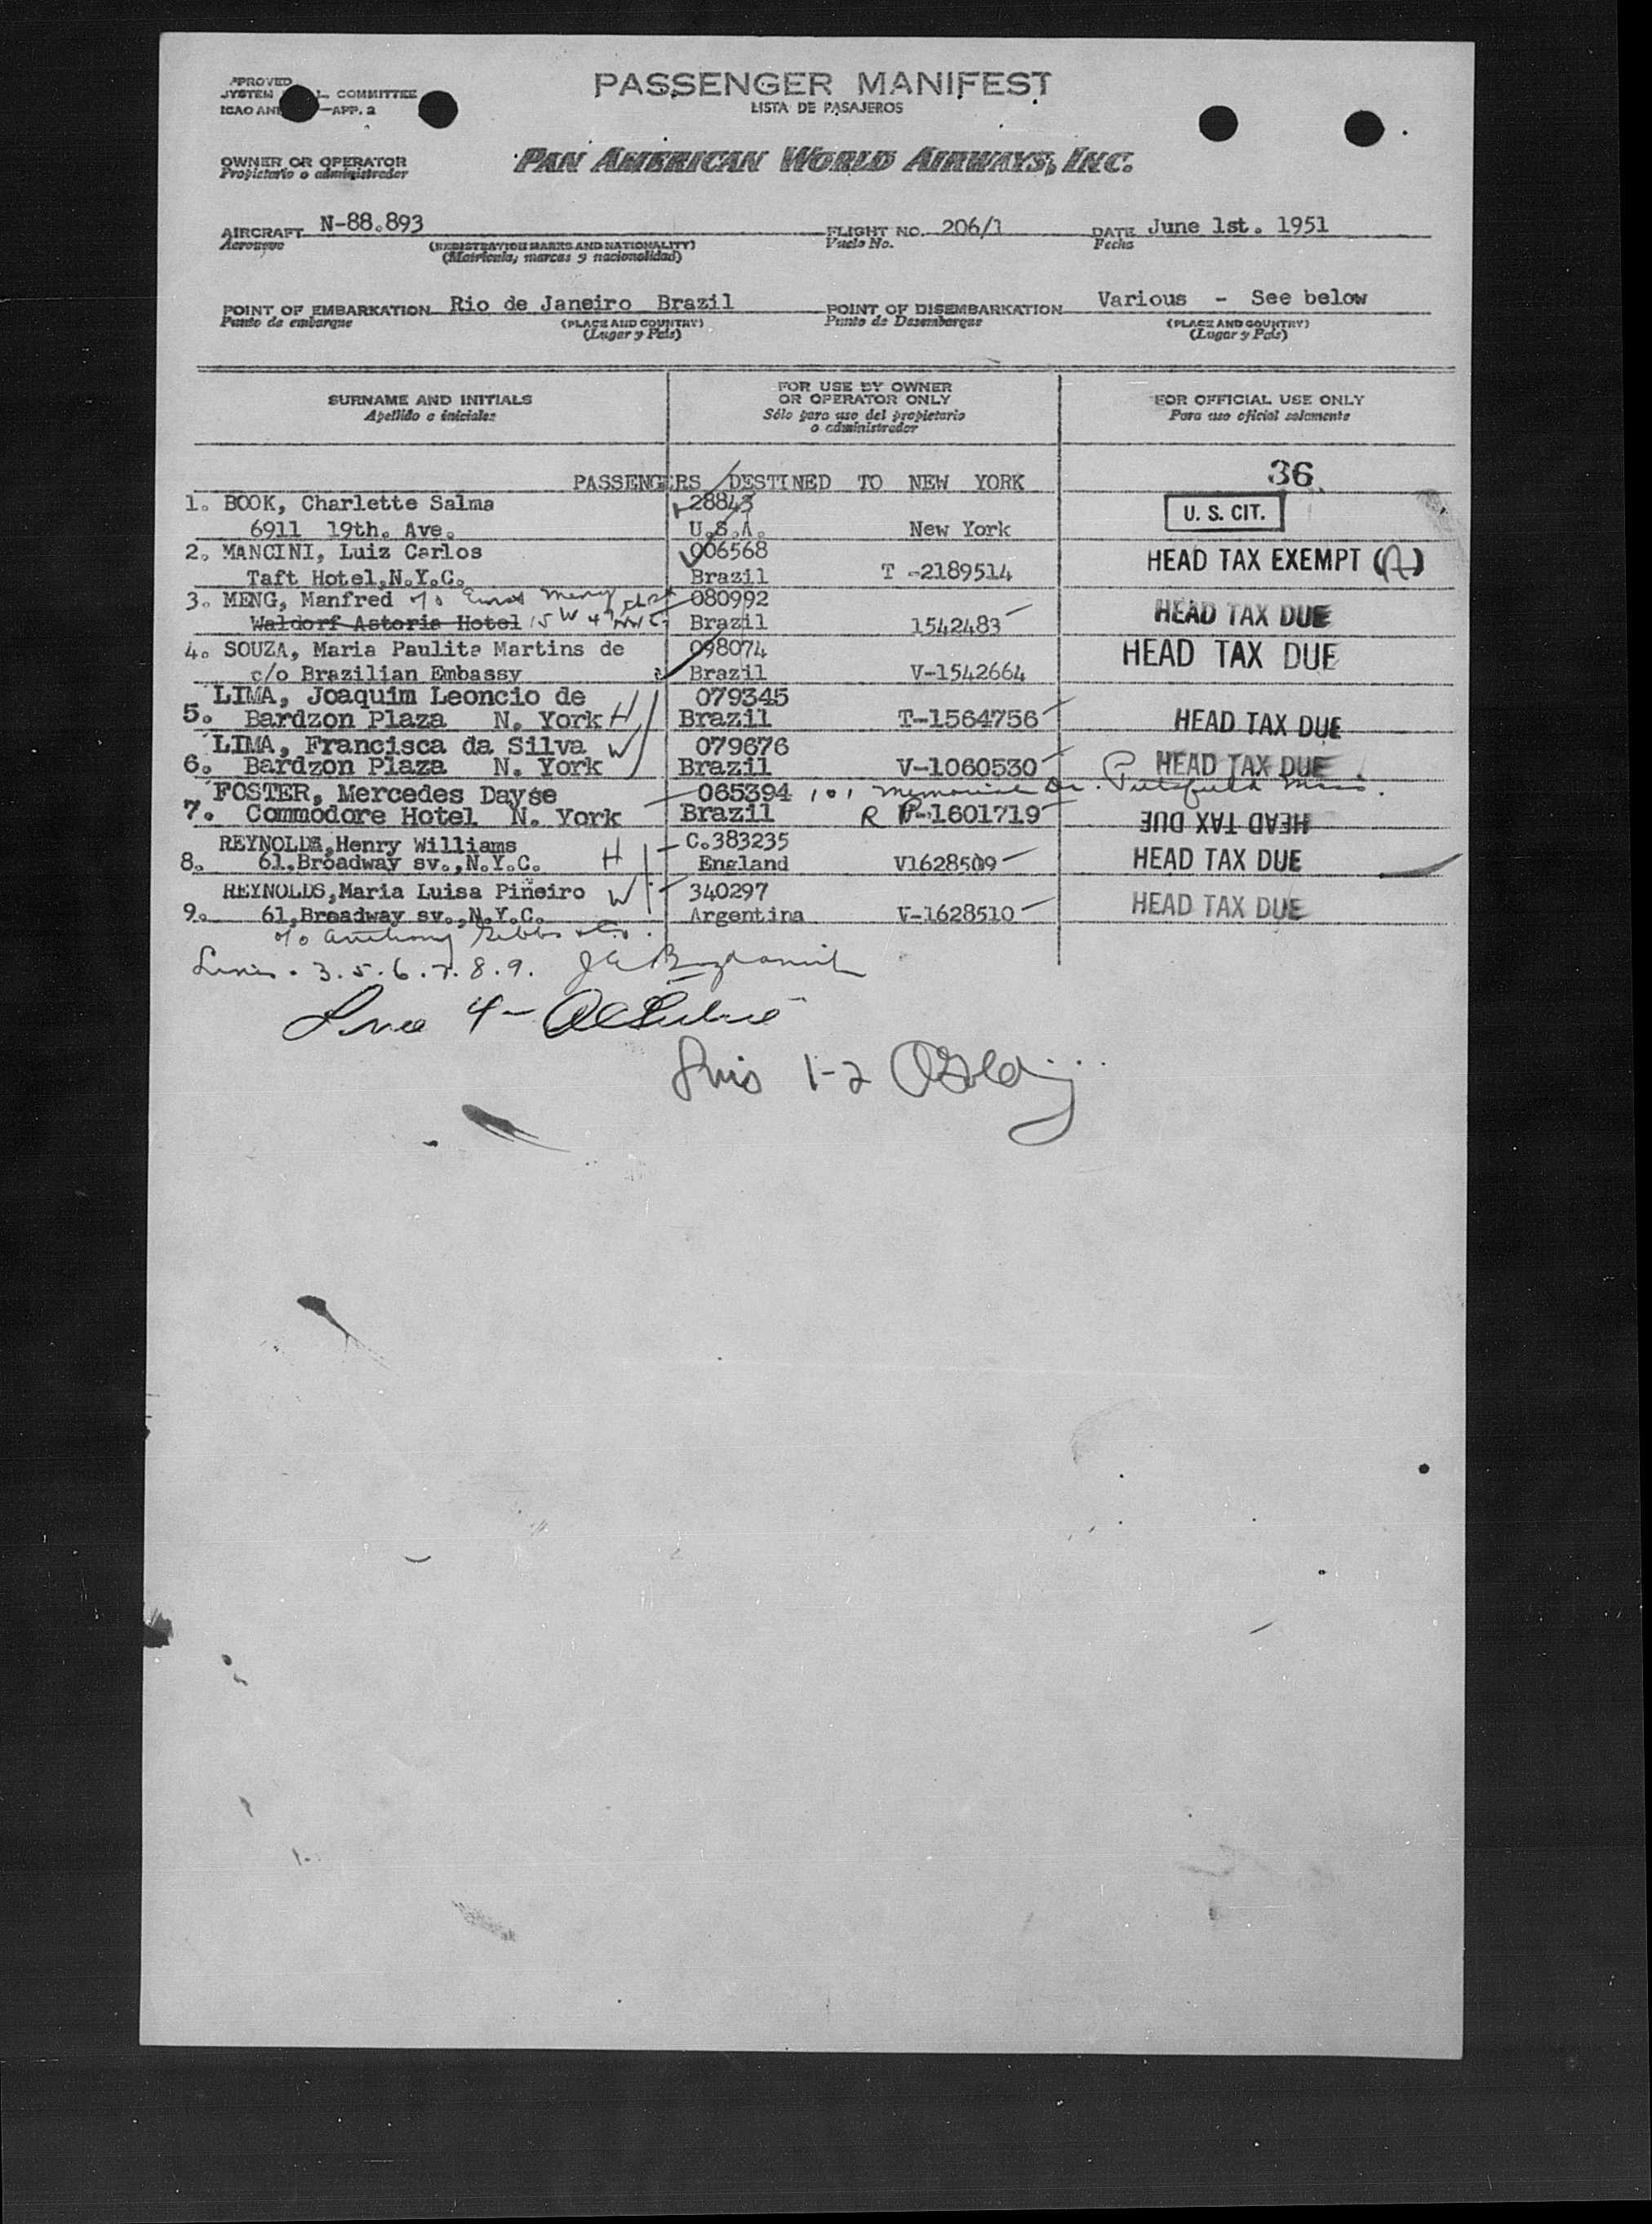 PASSENGER MANIFEST
LISTA DE PASAJEROS
PROVED
SYSTEM COMMITTEE
ICAO APP. 2
OWNER OR OPERATOR
Propietario o administrador
PAN AMERICAN WORLD AIRWAYS, INC.
AIRCRAFT N-88.893 FLIGHT NO. 206/1 DATE June 1st. 1951
Aeronave (REGISTRATION MARKS AND NATIONALITY) Vuelo No. Fecha
(Matricula, marcas y nacionalidad)
POINT OF EMBARKATION Rio de Janeiro Brazil POINT OF DISEMBARKATION Various - See below
Punto de embarque (PLACE AND COUNTRY) Punto de Desembarque (PLACE AND COUNTRY)
(Lugar y País) (Lugar y País)
SURNAME AND INITIALS FOR USE BY OWNER OR OPERATOR ONLY FOR OFFICIAL USE ONLY
Apellido e iniciales Sólo para uso del propietario o administrador Para uso oficial solamente
PASSENGERS DESTINED TO NEW YORK 36
1. BOOK, Charlette Salma 28843 U. S. CIT.
6911 19th. Ave. U.S.A. New York
2. MANCINI, Luiz Carlos 006568 HEAD TAX EXEMPT (A)
Taft Hotel, N.Y.C. Brazil T -2189514
3. MENG, Manfred c/o Meng 080992 HEAD TAX DUE
Waldorf Astoria Hotel 15 W Brazil 1542483
4. SOUZA, Maria Paulita Martins de 098074 HEAD TAX DUE
c/o Brazilian Embassy Brazil V-1542664
LIMA, Joaquim Leoncio de 079345
5. Bardzon Plaza N. York H Brazil T-1564756 HEAD TAX DUE
LIMA, Francisca da Silva W 079676
6. Bardzon Plaza N. York Brazil V-1060530 HEAD TAX DUE
FOSTER, Mercedes Dayse 065394 101 Memorial Dr. Pittsfield Mass.
7. Commodore Hotel N. York Brazil R -1601719 HEAD TAX DUE
REYNOLDS, Henry Williams C.383235
8. 61.Broadway sv., N.Y.C. H England V1628509 HEAD TAX DUE
REYNOLDS, Maria Luisa Piñeiro W 340297
9. 61, Broadway sv., N.Y.C. Argentina V-1628510 HEAD TAX DUE
c/o Anthony Gibbs
Lines. 3. 5. 6. 7. 8. 9.
Line 4 -
Lines 1-2